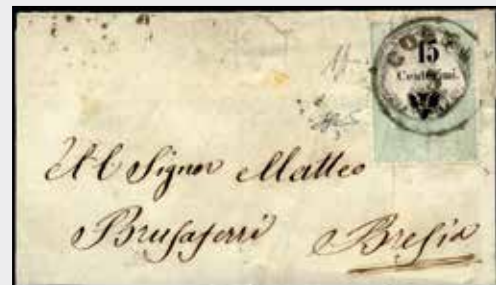 15
Centesimi.
Al Signor Matteo
Brusaferri Bresia